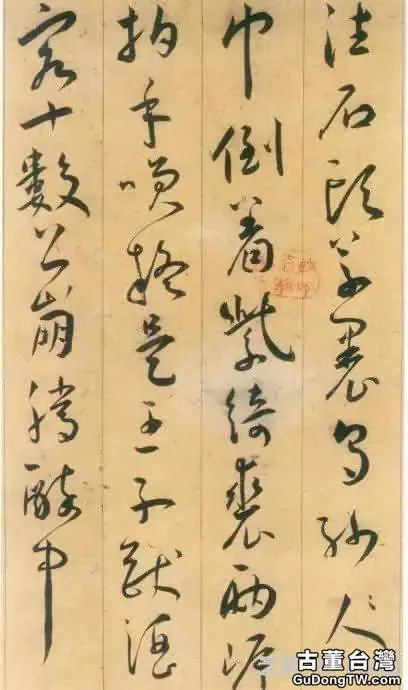 往石頭草裹烏紗人
巾倒著紫綺裘兩岸
拍手笑疑是王子猷酒
客十數公崩騰醉中
古董台灣
GuDongTW.com